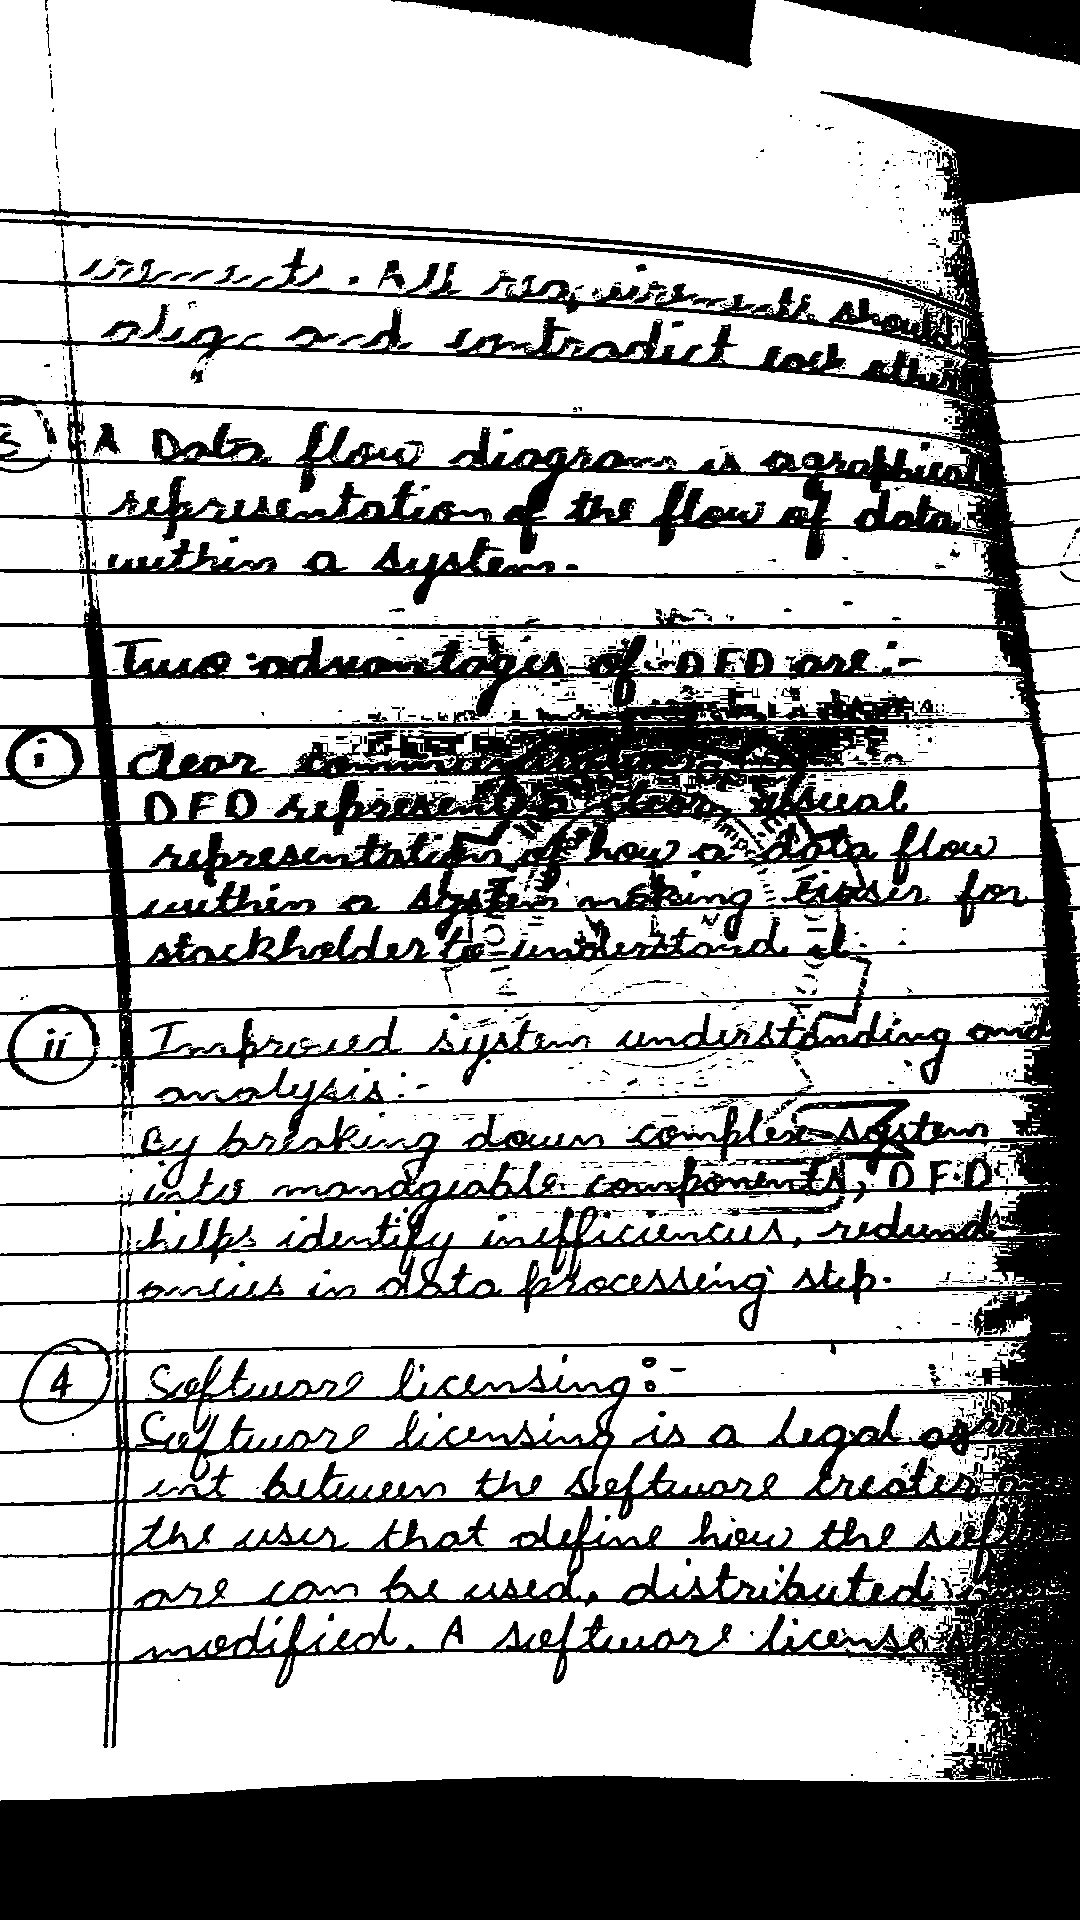 irements. All requirements should
align and contradict each other
A Data flow diagram is a graphical
representation of the flow of data
within a system.
Two advantages of DFD are :-
i clear communication
DFD represent a clear visual
representation of how a data flow
within a system making easier for
stackholder to understand it.
ii Improved system understanding and
analysis :-
By breaking down complex system
into manageable components, D F.D
helps identify inefficiencies, redund
ancies in data processing step.
4 Software licensing :-
Software licensing is a legal agree
ent between the software creates
the user that define how the softw
are can be used, distributed
modified. A software license